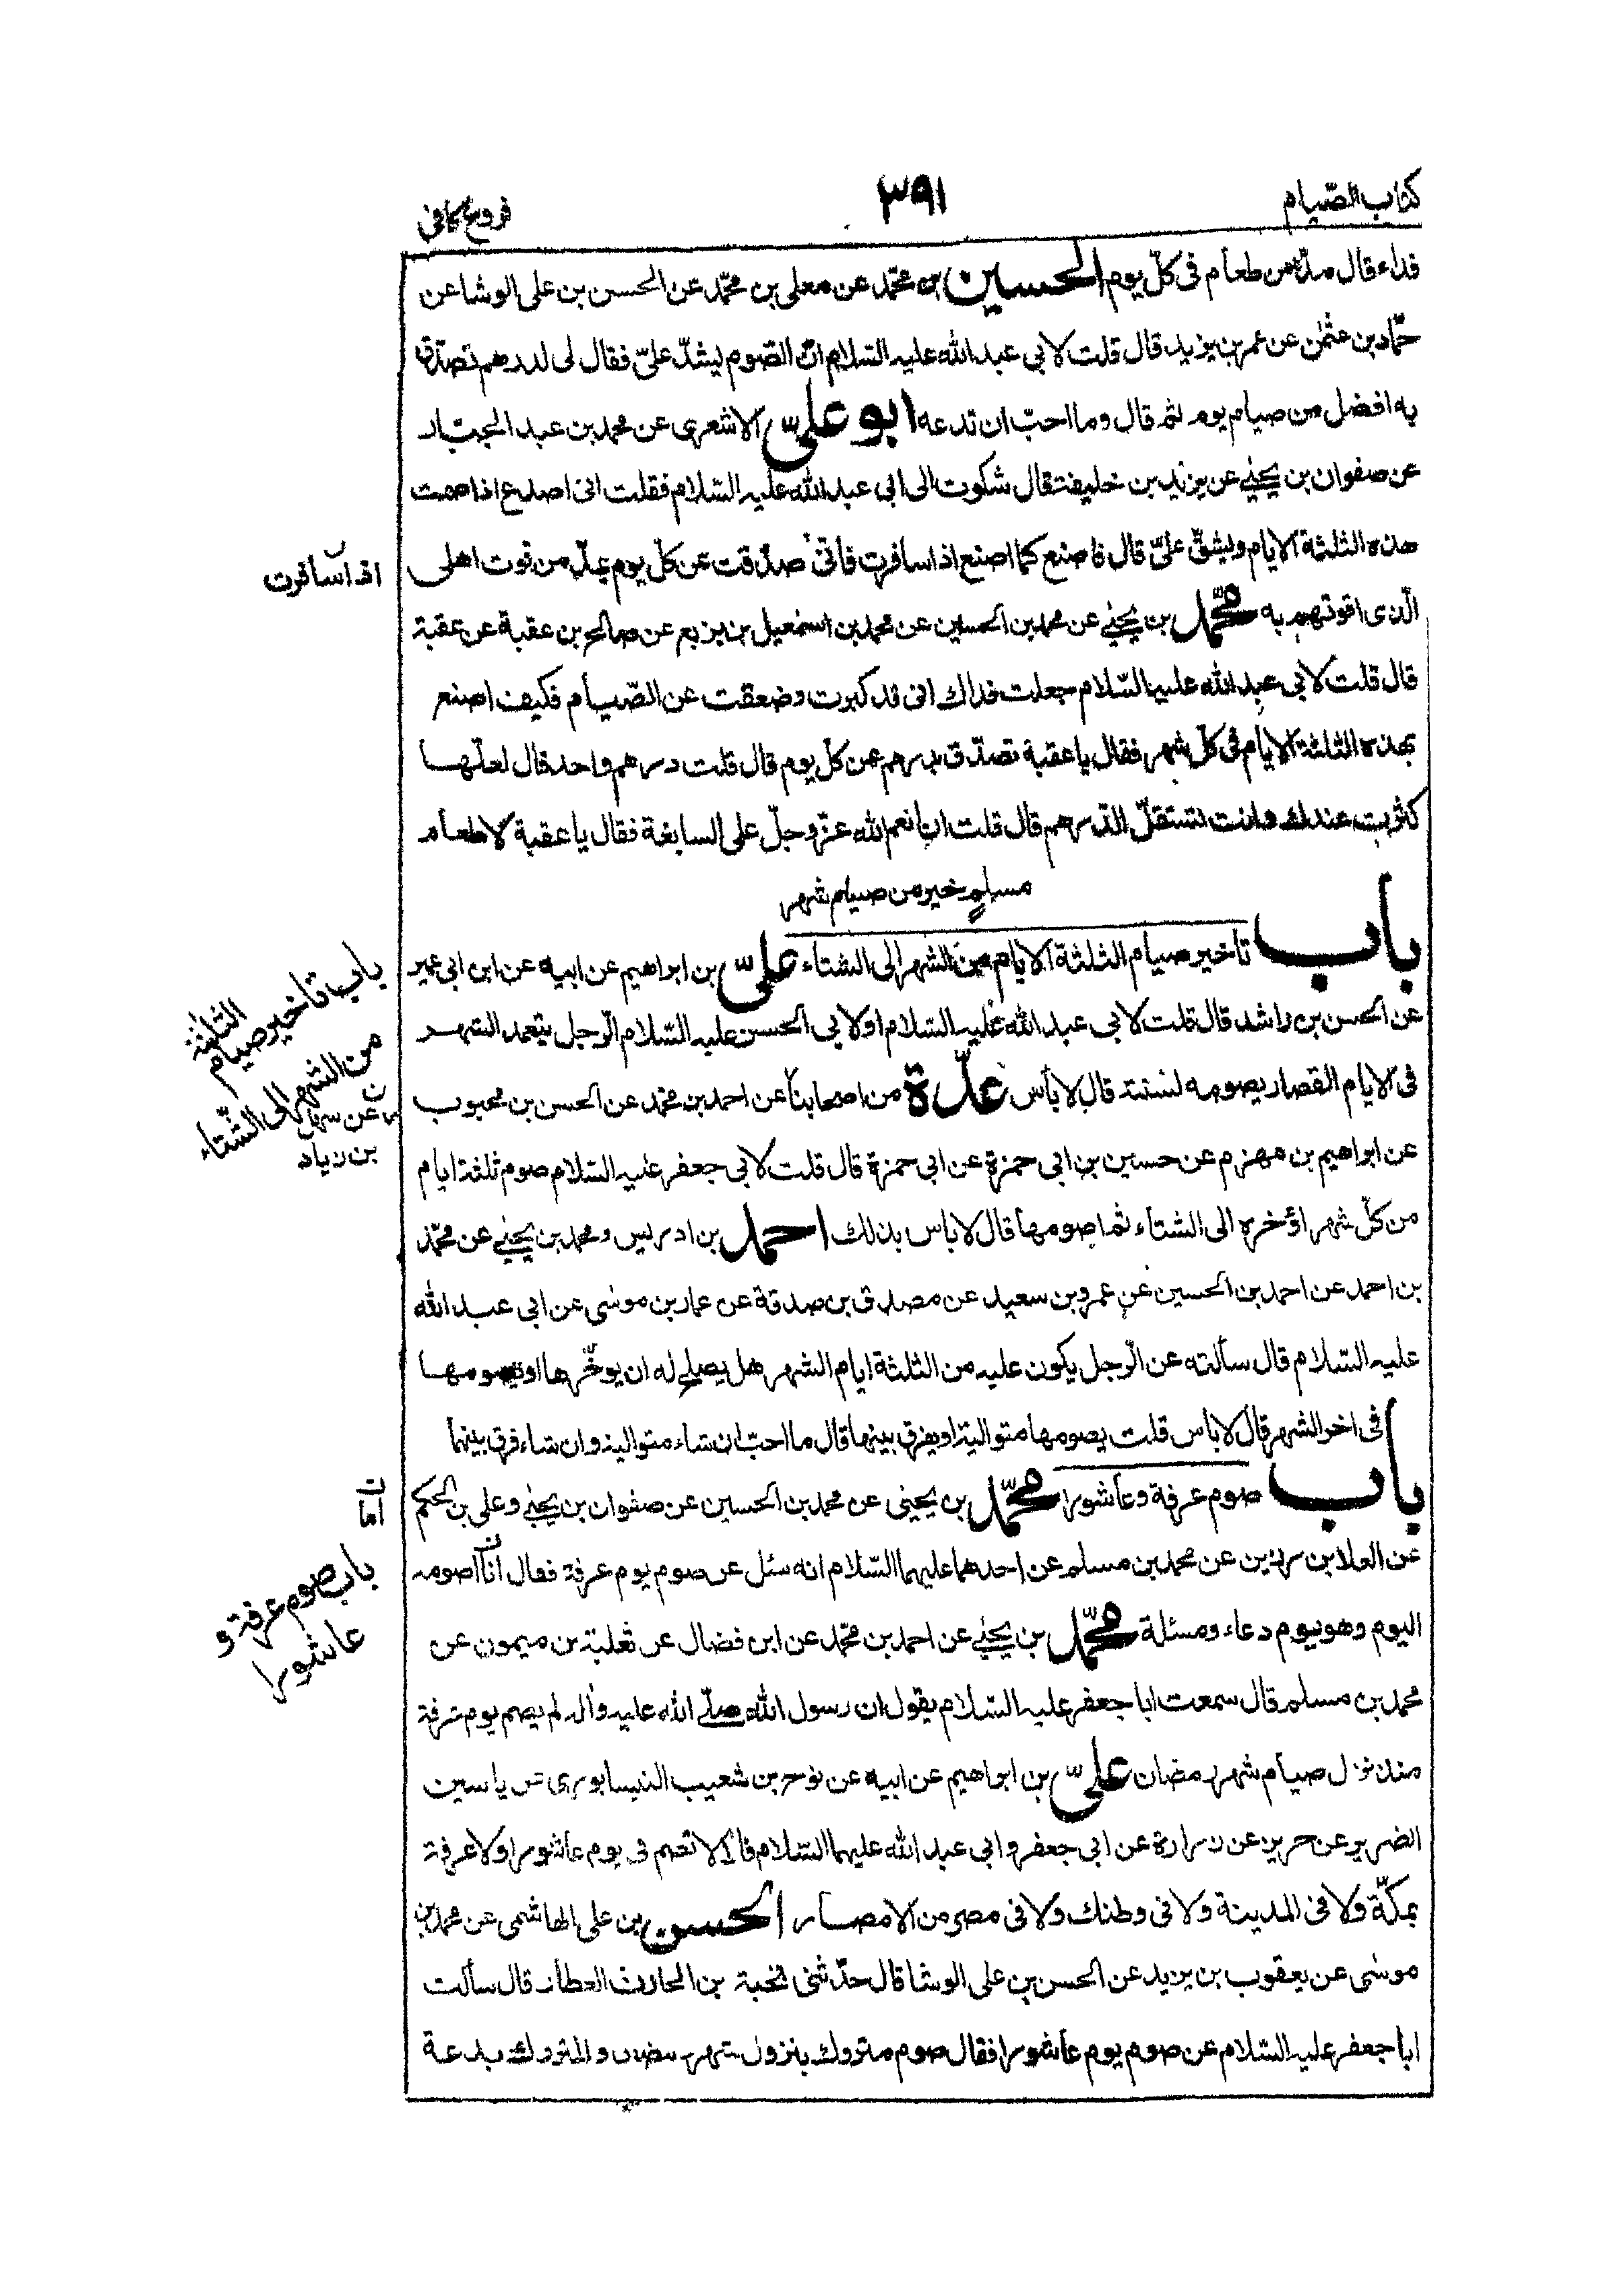 كتاب الصّيام
٣٩١
فروع كافى
فداء قال مدّ من طعام فى كلّ يوم الحسين بن محمّد عن معلى بن محمّد عن الحسن بن على الوشا عن
حمّاد بن عثمٰن عن عمر بن يزيد قال قلت لابى عبد الله عليه السّلام انّ الصّوم ليشدّ علىّ فقال لى لدرهم تصدّق
به افضل من صيام يوم ثم قال وما احبّ ان تدعه ابو علىّ الاشعرى عن محمد بن عبد الجبّار
عن صفوان بن يحيىٰ عن يزيد بن خليفة قال شكوت الى ابى عبد الله عليه السّلام فقلت انى اصدع اذا صمت
هذه الثلثة الايام ويشقّ علىّ قال فاصنع كما اصنع اذا سافرت فانّى صدّقت عن كلّ يوم بمدّ من قوت اهلى
اذا سافرت
الّذى اقوتهم به محمّد بن يحيىٰ عن محمد بن الحسين عن محمد بن اسمٰعيل بن بزيع عن صالح بن عقبة عن عقبة
قال قلت لابى عبد الله عليه السّلام جعلت فداك انى قد كبرت وضعفت عن الصّيام فكيف اصنع
بهذه الثلثة الايام فى كلّ شهر فقال يا عقبة تصدّق بدرهم عن كلّ يوم قال قلت درهم واحد قال لعلّها
كثرت عندك وانت تستقلّ الدّرهم قال قلت انّ نعم الله عزّ وجلّ على السابغة فقال يا عقبة لاطعام
مسلمٍ خير من صيام شهر
باب تاخير صيام الثلثة الايام من الشهر الى الشتاء علىّ بن ابراهيم عن ابيه عن ابن ابى عمير
باب تاخير صيام الثلثة
من الشهر الى الشّتاء
عن الحسن بن راشد قال قلت لابى عبد الله عليه السّلام او لابى الحسن عليه السّلام الرّجل يتعمد الشهر
فى الايام القصار يصومه لسنته قال لا بأس عدّة من اصحابنا عن احمد بن محمّد عن الحسن بن محبوب
عن سهل
بن زياد
عن ابراهيم بن مهزم عن حسين بن ابى حمزة عن ابى حمزة قال قلت لابى جعفر عليه السّلام صوم ثلثة ايام
من كلّ شهر اؤخره الى الشتاء ثم اصومها قال لا باس بذلك احمد بن ادريس ومحمد بن يحيىٰ عن محمّد
بن احمد عن احمد بن الحسين عن عمرو بن سعيد عن مصدق بن صدقة عن عمار بن موسٰى عن ابى عبد الله
عليه السّلام قال سألته عن الرّجل يكون عليه من الثلثة ايام الشهر هل يصلح له ان يوخّرها او يصومها
فى اخر الشهر قال لا باس قلت يصومها متوالية او يفرق بينها قال ما احبّ ان شاء متوالية وان شاء فرق بينها
باب صوم عرفة وعاشورا محمّد بن يحيىٰ عن محمد بن الحسين عن صفوان بن يحيىٰ وعلى بن الحكم
اما
عن العلا بن رزين عن محمد بن مسلم عن احدهما عليهما السّلام انه سئل عن صوم يوم عرفة فقال انا اصومه
باب صوم عرفة و
عاشورا
اليوم وهو يوم دعاء ومسئلة محمّد بن يحيىٰ عن احمد بن محمّد عن ابن فضال عن ثعلبة بن ميمون عن
محمد بن مسلم قال سمعت ابا جعفر عليه السّلام يقول ان رسول الله صلّى الله عليه وآله لم يصم يوم عرفة
منذ نزل صيام شهر رمضان علىّ بن ابراهيم عن ابيه عن نوح بن شعيب النيسابورى عن ياسين
الضرير عن حريز عن زرارة عن ابى جعفر وابى عبد الله عليهما السّلام قالا لا تصم فى يوم عاشورا ولا عرفة
بمكّة ولا فى المدينة ولا فى وطنك ولا فى مصر من الامصار الحسن بن على الهاشمى عن محمد بن
موسٰى عن يعقوب بن يزيد عن الحسن بن على الوشا قال حدّثنى نجبة بن الحارث العطار قال سألت
ابا جعفر عليه السّلام عن صوم يوم عاشورا فقال صوم متروك بنزول شهر رمضان والمتروك بدعة